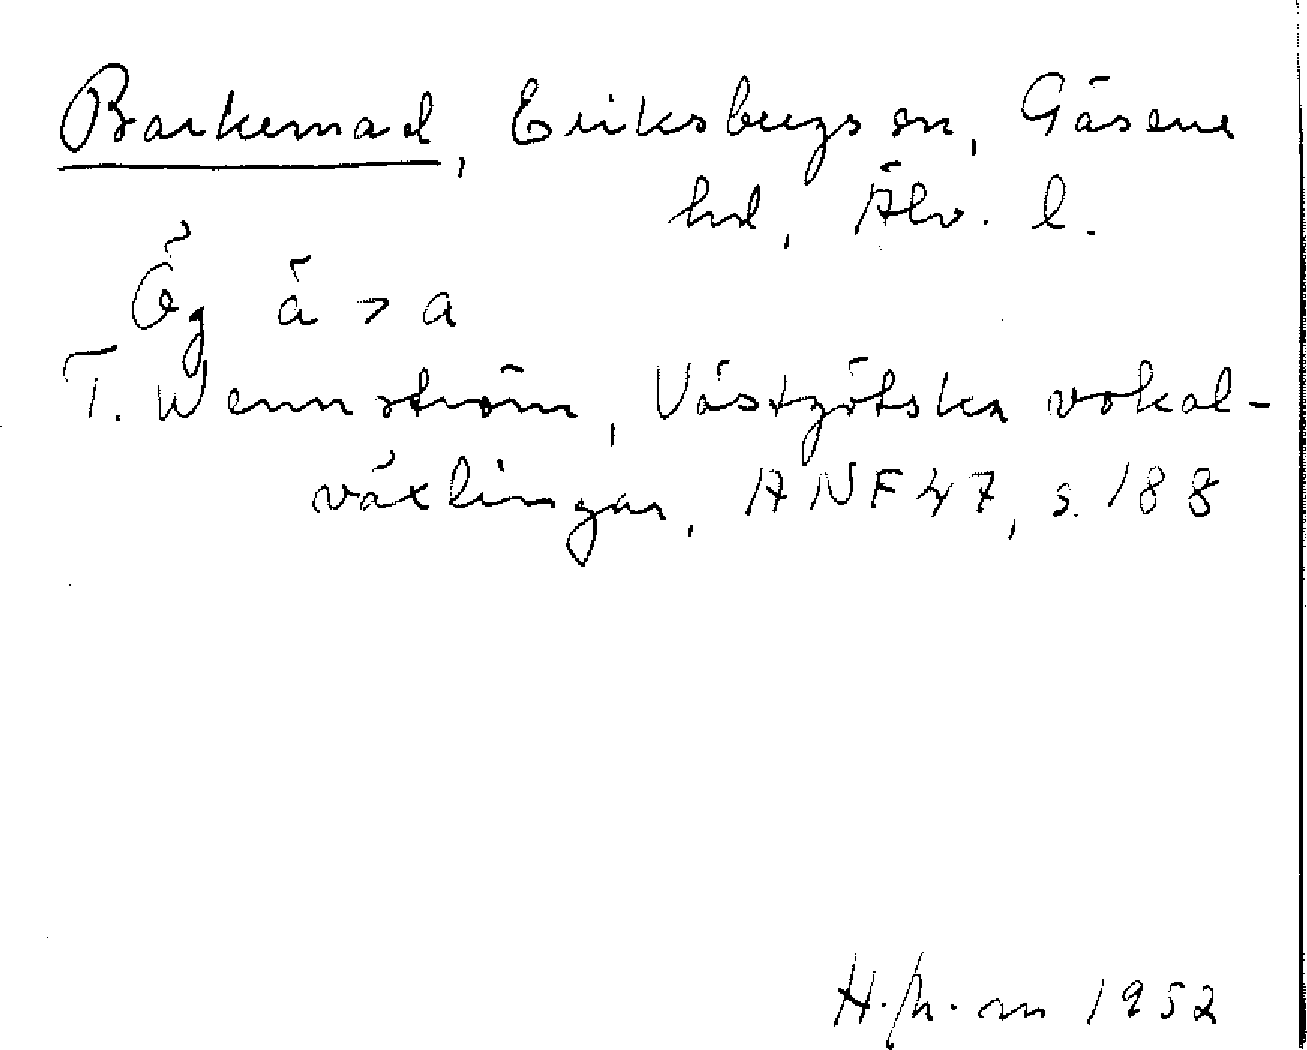 Barkemad, Eriksbergs sn, Gäsene
hd, Älv. l.
Ög ä > a
T. Wennström, Västgötska vokal-
växlingar, ANF 47, s. 188
1952